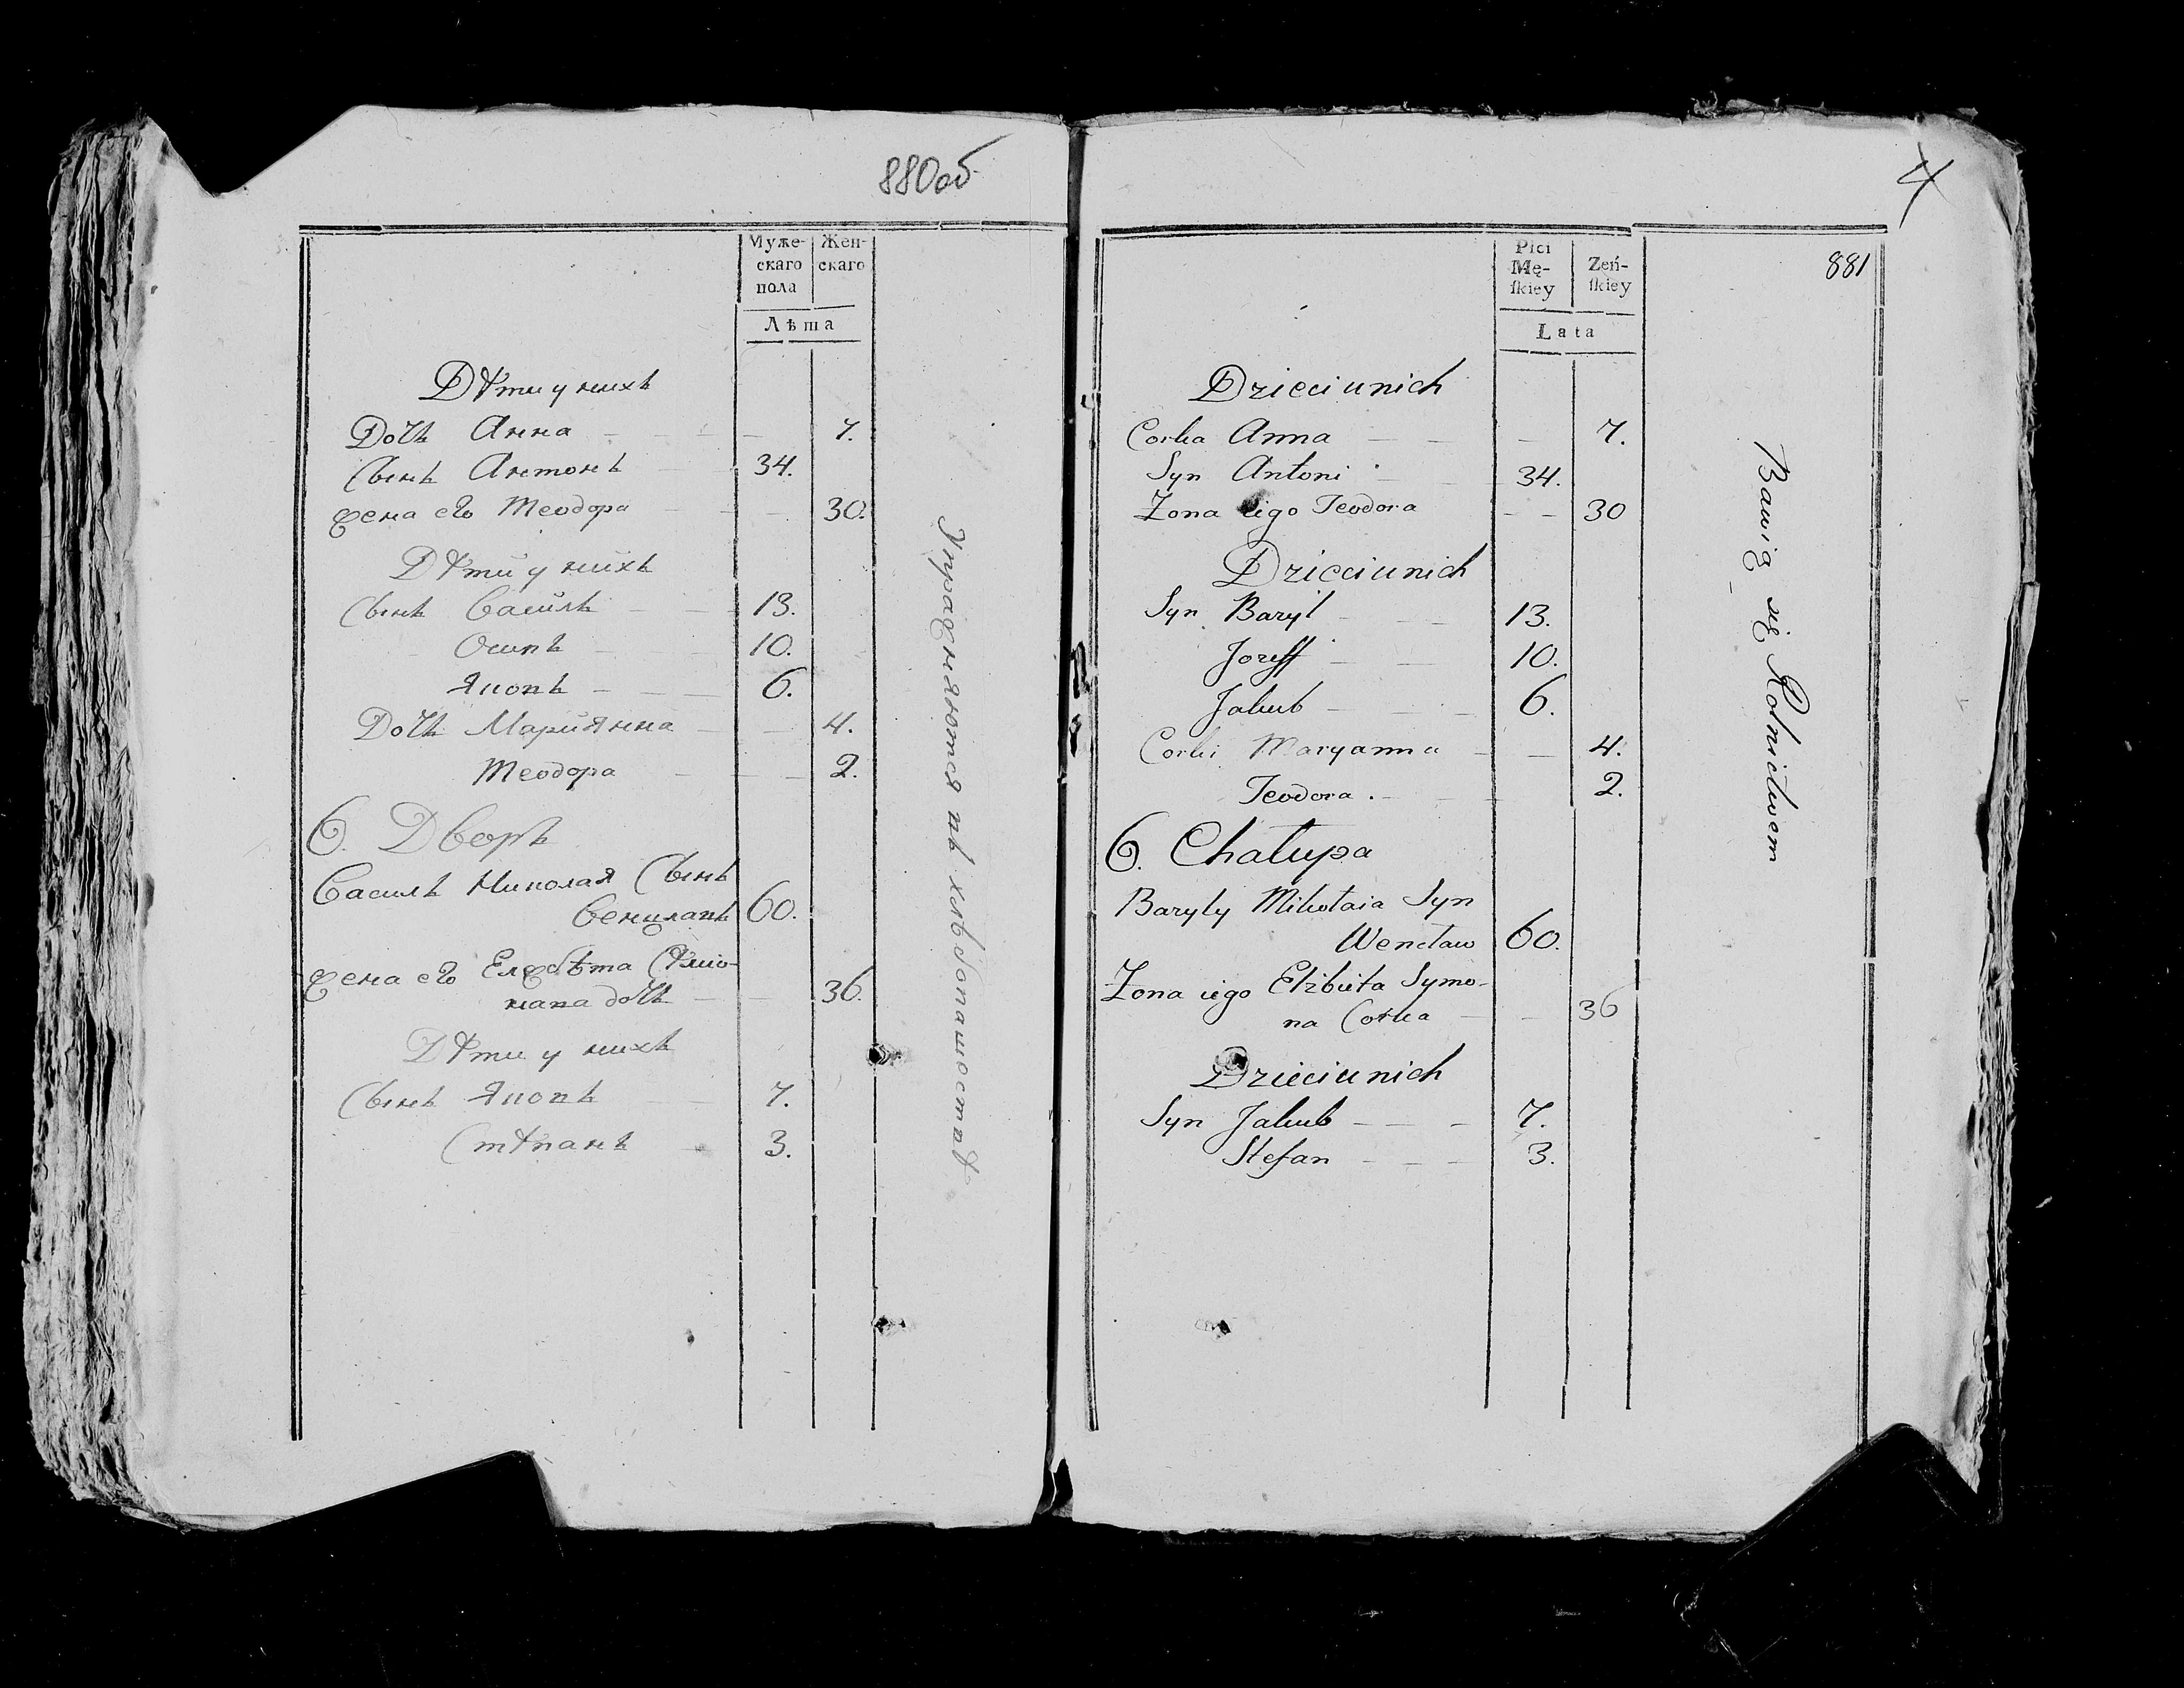 880об
Муже-
скаго
пола
Жен-
скаго
Лѣта
Дѣти у нихъ
Дочь Анна 7.
Сынъ Антонъ 34.
Жена его Теодора 30.
Дѣти у нихъ
Сынъ Василь 13.
Осипъ 10.
Яковъ 6.
Дочь Мариянна 4.
Теодора 2.
6. Дворъ
Василь Николая Сынъ
Венцлавъ 60.
Жена его Елжбѣта Сѣмо-
нава дочь 36.
Дѣти у нихъ
Сынъ Яковъ 7.
Стѣпанъ 3.
Упражняются въ хлѣбопашествѣ
4
881
Płci
Mę-
ſkiey
Zeń-
ſkiey
Lata
Dzieci u nich
Corka Anna 7.
Syn Antoni 34.
Zona iego Teodora 30
Dzieci u nich
Syn Bazyl 13.
Jozeff 10.
Jakub 6.
Corki Maryanna 4.
Teodora 2.
6. Chałupa
Bazyly Mikołaia Syn
Wencław 60.
Zona iego Elzbieta Symo-
na Corka 36
Dzieci u nich
Syn Jakub 7.
Stefan 3.
Bawią się Rolnictwem